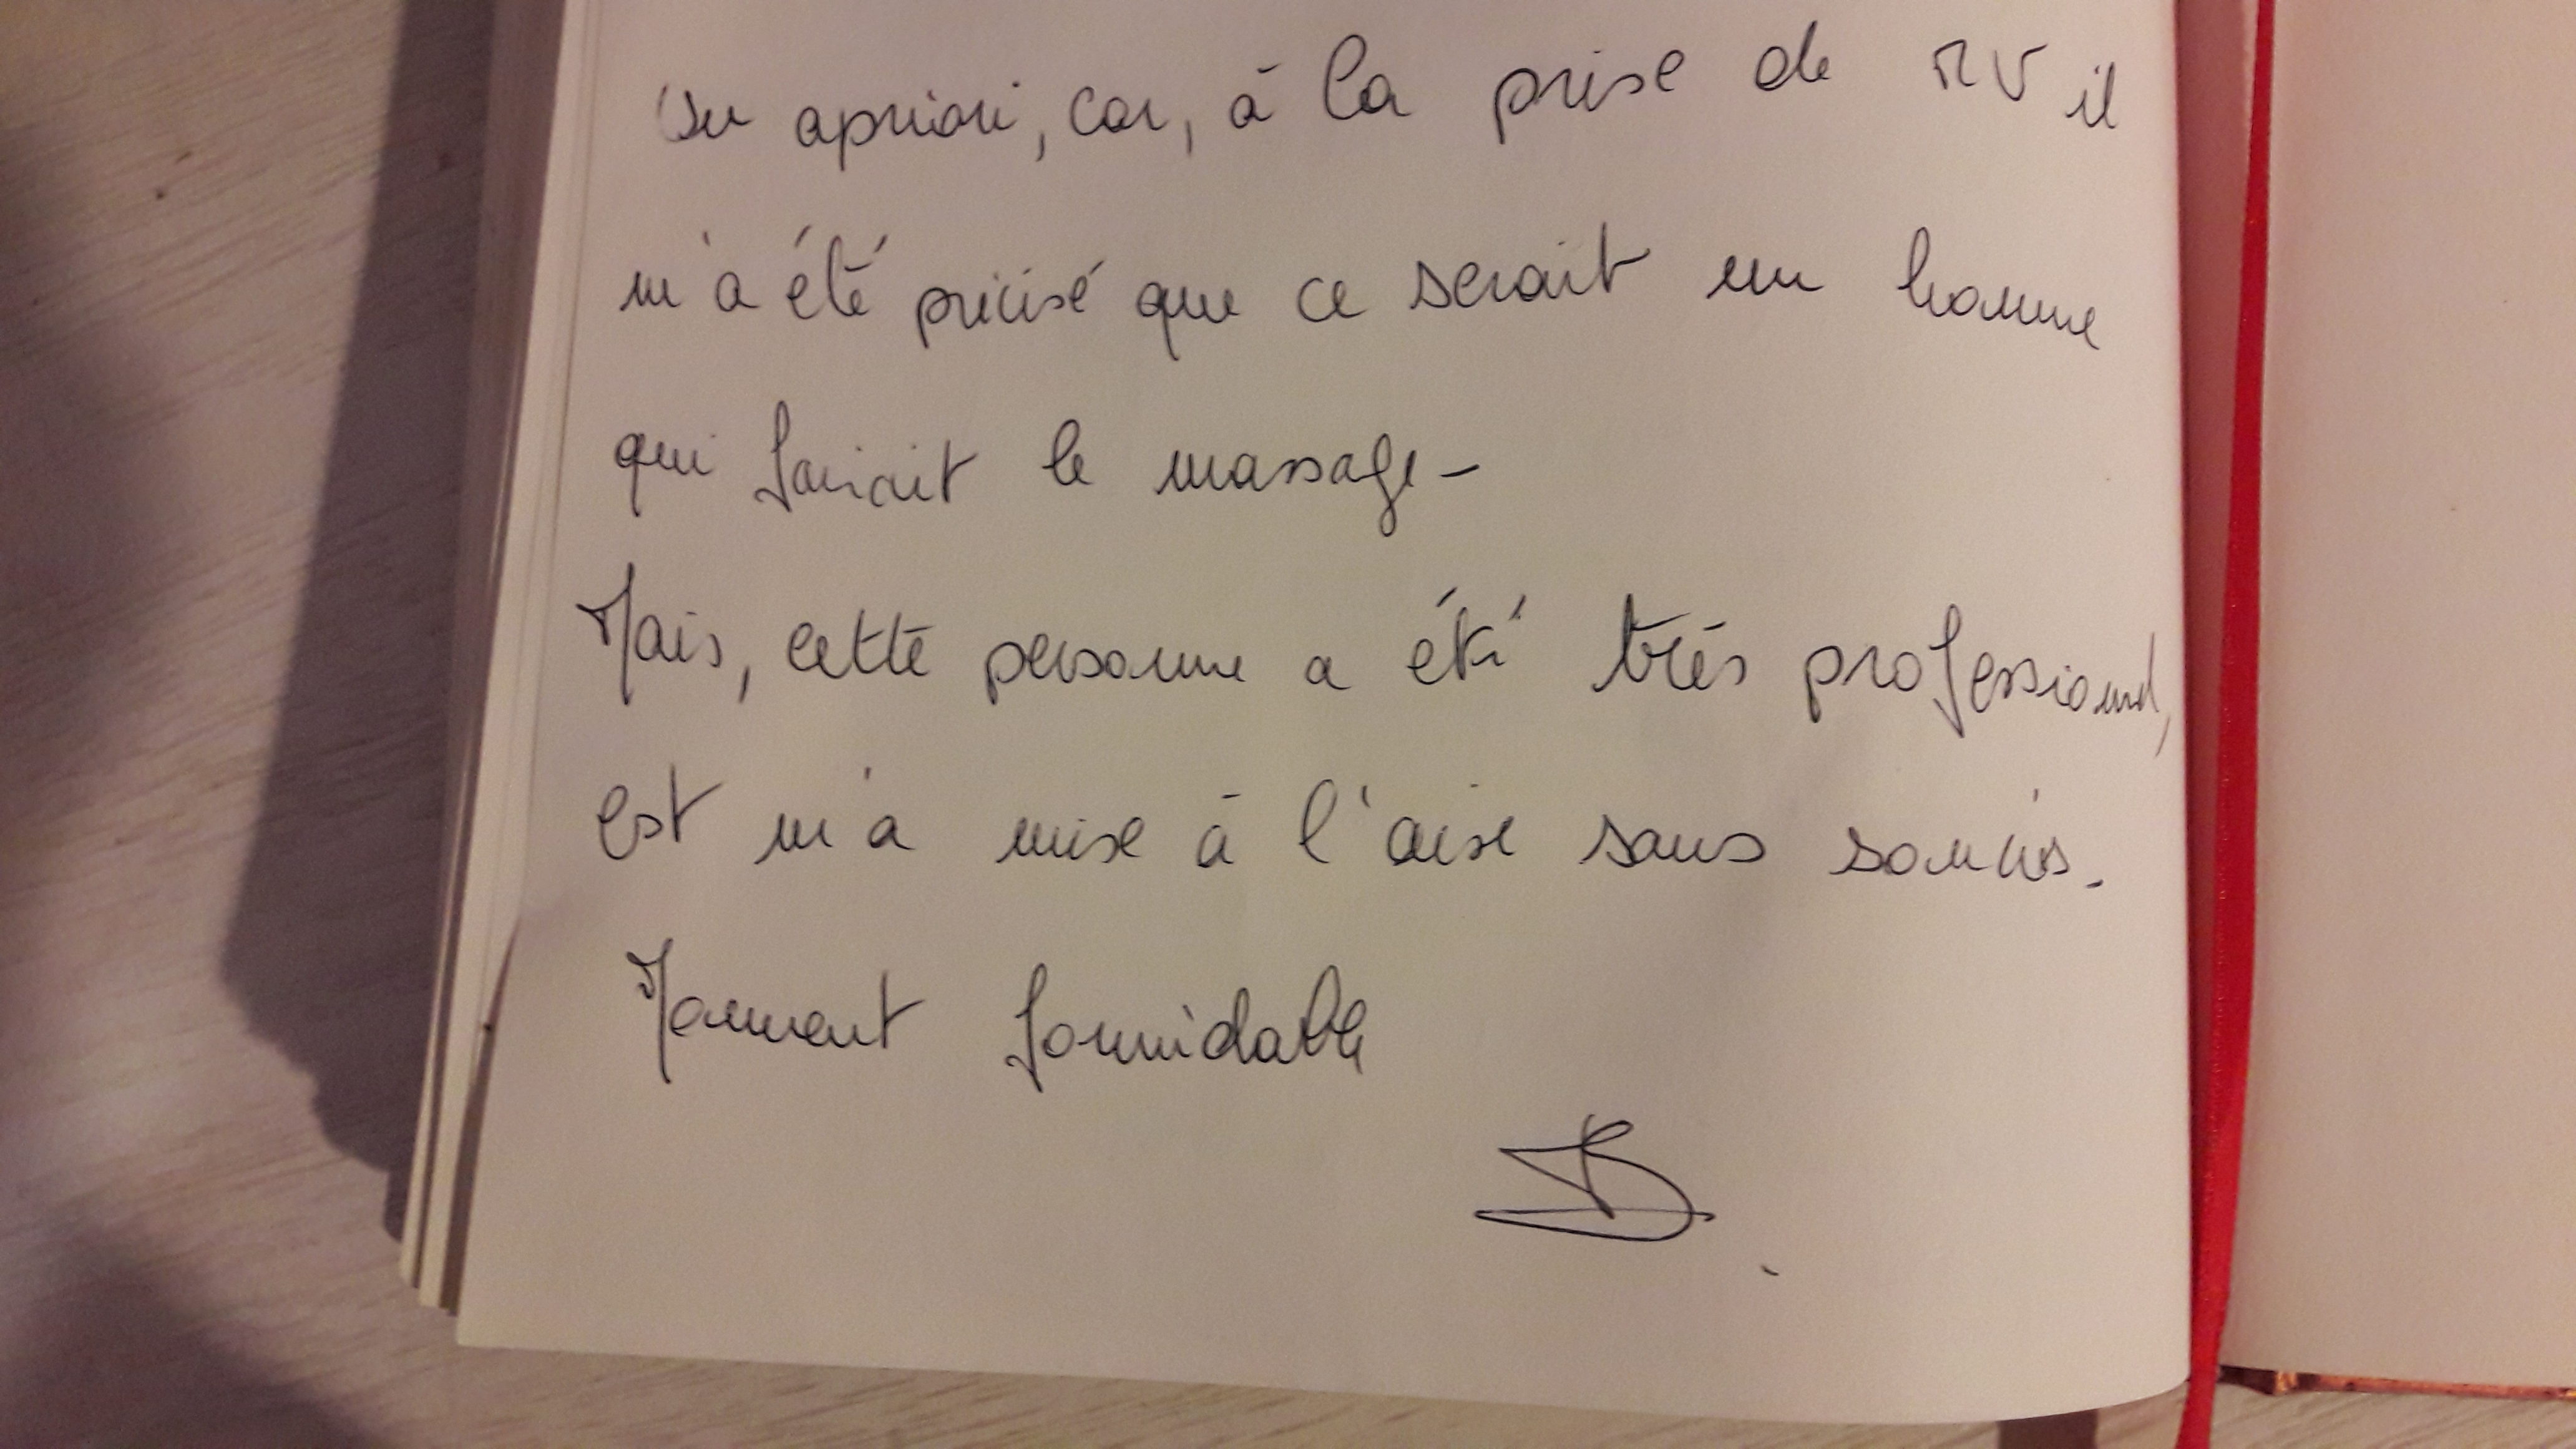 un apriori, car, à la prise de RV il
m'a été précisé que ce serait un homme
qui fairait le massage -
Mais, cette personne a été très professionnel,
est m'a mise à l'aise sans soucis.
Moment formidable